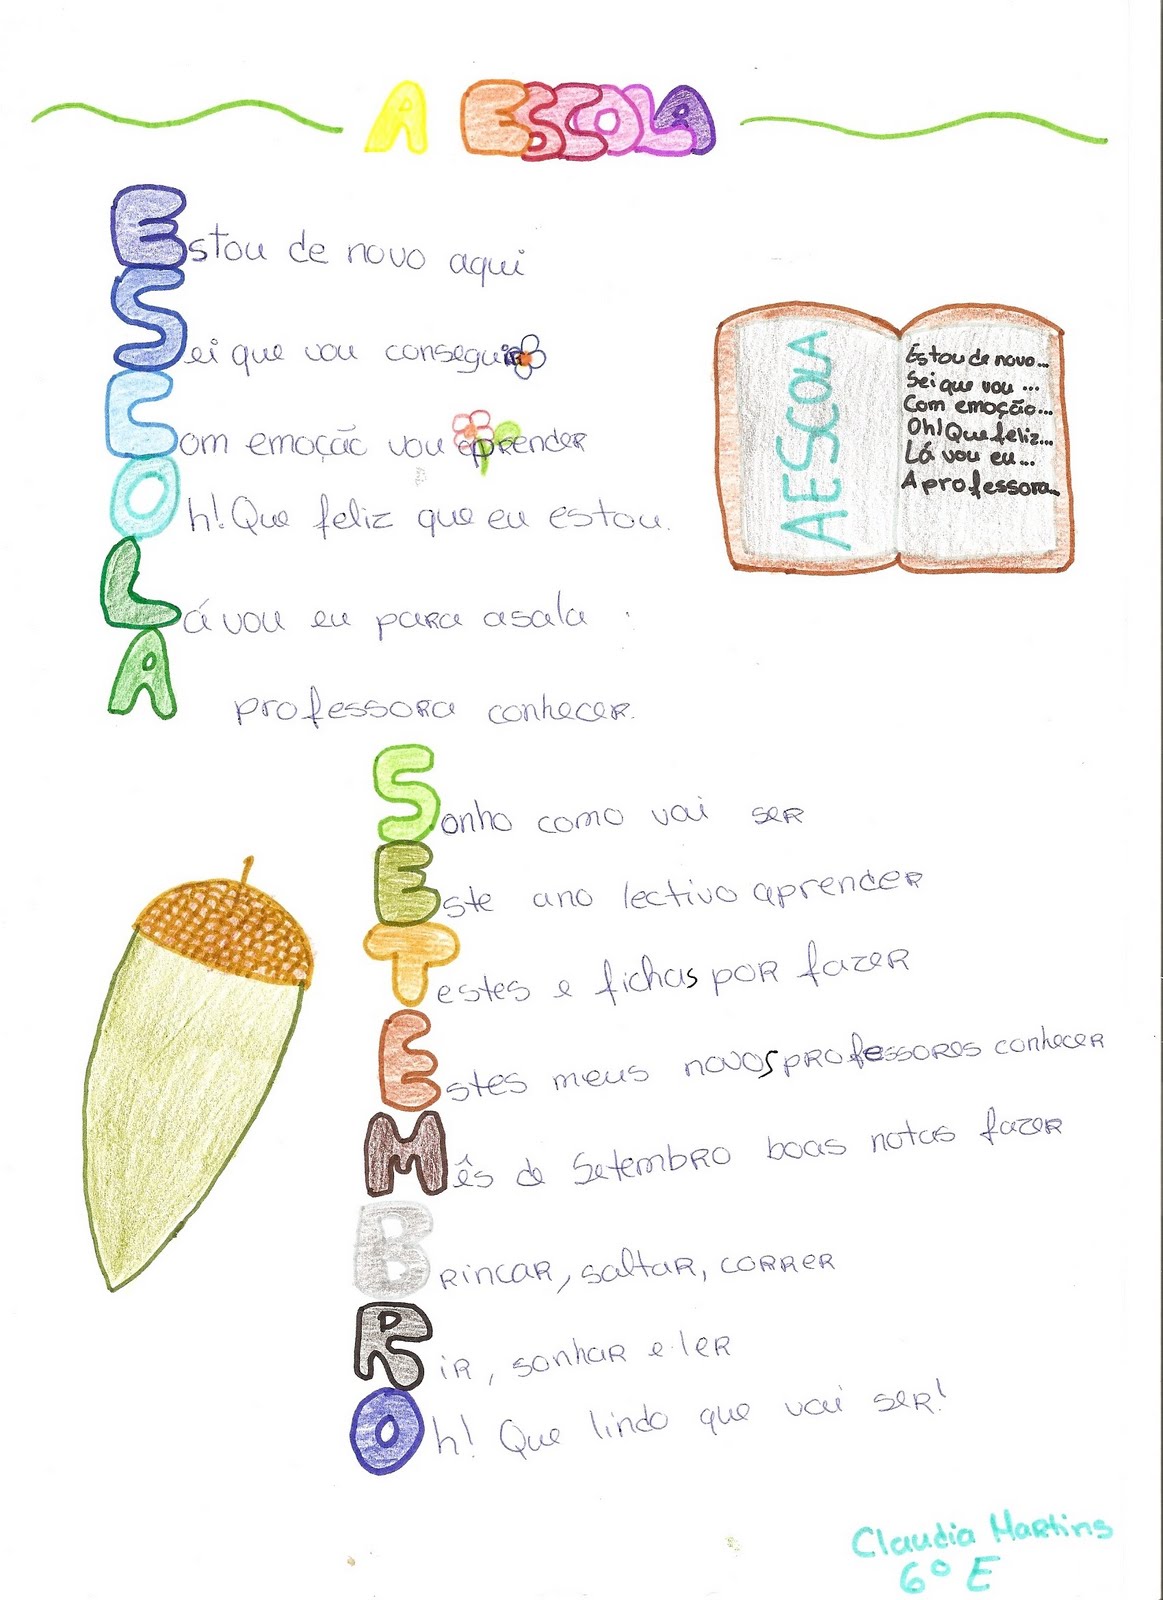 A ESCOLA
Estou de novo aqui
Sei que vou conseguir
Com emoção vou aprender
Oh! Que feliz que eu estou.
Lá vou eu para a sala
A professora conhecer.
A ESCOLA
Estou de novo...
Sei que vou ...
Com emoção...
Oh! Que feliz...
Lá vou eu...
A professora...
Sonho como vai ser
Este ano lectivo aprender
Testes e fichas por fazer
Estes meus novos professores conhecer
Mês de Setembro boas notas fazer
Brincar, saltar, correr
Rir, sonhar e ler
Oh! Que lindo que vai ser!
Claudia Martins
6º E